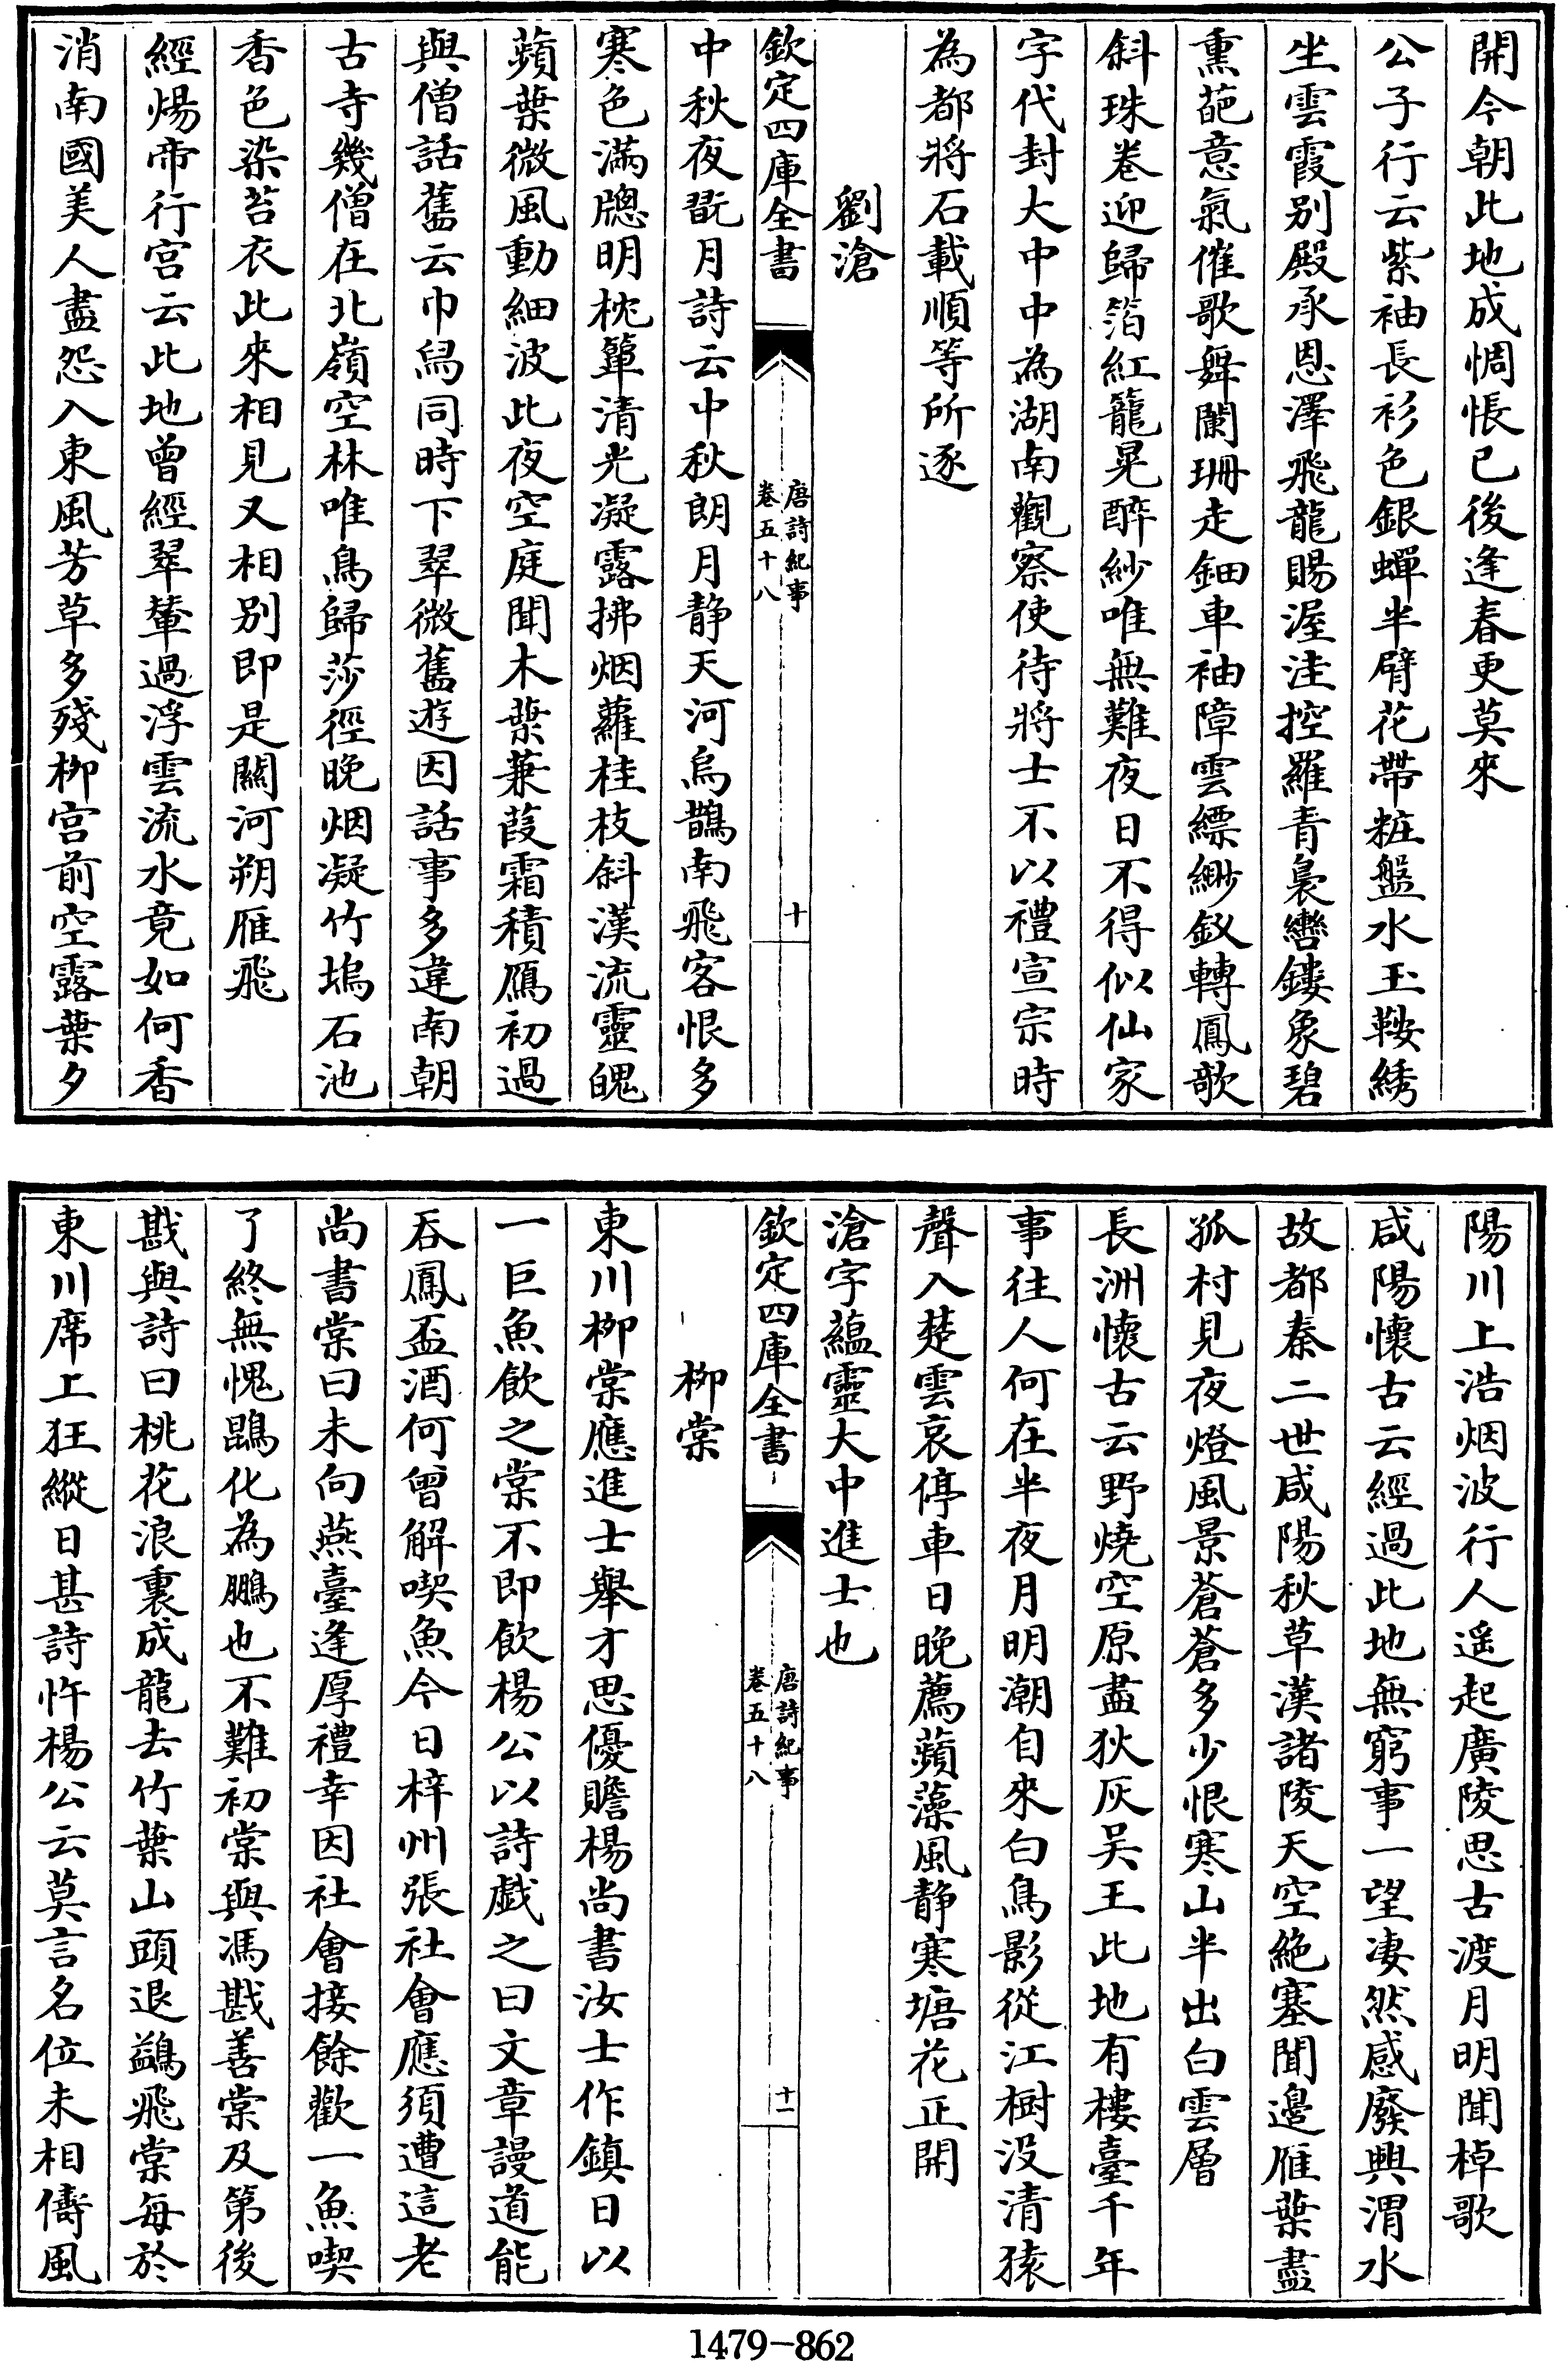 開今朝此地成惆悵已後逢春更莫來
公子行云紫袖長衫色銀蟬半臂花帶粧盤水玉鞍綉
坐雲霞别殿承恩澤飛龍賜渥洼控羅青裊轡鏤象碧
熏葩意氣催歌舞闌珊走鈿車袖障雲縹緲釵轉鳳欹
斜珠卷迎歸箔紅籠晃醉紗唯無難夜日不得似仙家
字代封大中中為湖南觀察使待將士不以禮宣宗時
為都將石載順等所逐
劉滄
欽定四庫全書
唐詩紀事
卷五十八
十
中秋夜翫月詩云中秋朗月静天河烏鵲南飛客恨多
寒色滿牕明枕簟清光凝露拂烟蘿桂枝斜漢流靈魄
蘋葉微風動細波此夜空庭聞木葉蒹葭霜積鴈初過
與僧話舊云巾舄同時下翠微舊遊因話事多違南朝
古寺幾僧在北嶺空林唯鳥歸莎徑晚烟凝竹塢石池
香色染苔衣此來相見又相别即是關河朔雁飛
經煬帝行宫云此地曾經翠輦過浮雲流水竟如何香
消南國美人盡怨入東風芳草多殘柳宫前空露葉夕
陽川上浩烟波行人遥起廣陵思古渡月明聞棹歌
咸陽懷古云經過此地無窮事一望凄然感廢興渭水
故都秦二世咸陽秋草漢諸陵天空絶塞聞邉雁葉盡
孤村見夜燈風景蒼蒼多少恨寒山半出白雲層
長洲懷古云野燒空原盡狄灰吴王此地有樓臺千年
事往人何在半夜月明潮自來白鳥影從江樹没清猿
聲入楚雲哀停車日晚薦蘋藻風静寒塘花正開
滄字藴靈大中進士也
欽定四庫全書
唐詩紀事
卷五十八
十一
柳棠
東川柳棠應進士舉才思優贍楊尚書汝士作鎮日以
一巨魚飲之棠不即飲楊公以詩戲之曰文章謾道能
吞鳳盃酒何曾解喫魚今日梓州張社會應須遭這老
尚書棠曰未向燕臺逢厚禮幸因社會接餘歡一魚喫
了終無愧鵾化為鵬也不難初棠與馮戡善棠及第後
戡與詩曰桃花浪裏成龍去竹葉山頭退鷁飛棠每於
東川席上狂縱日甚詩忤楊公云莫言名位未相儔風
1479-862